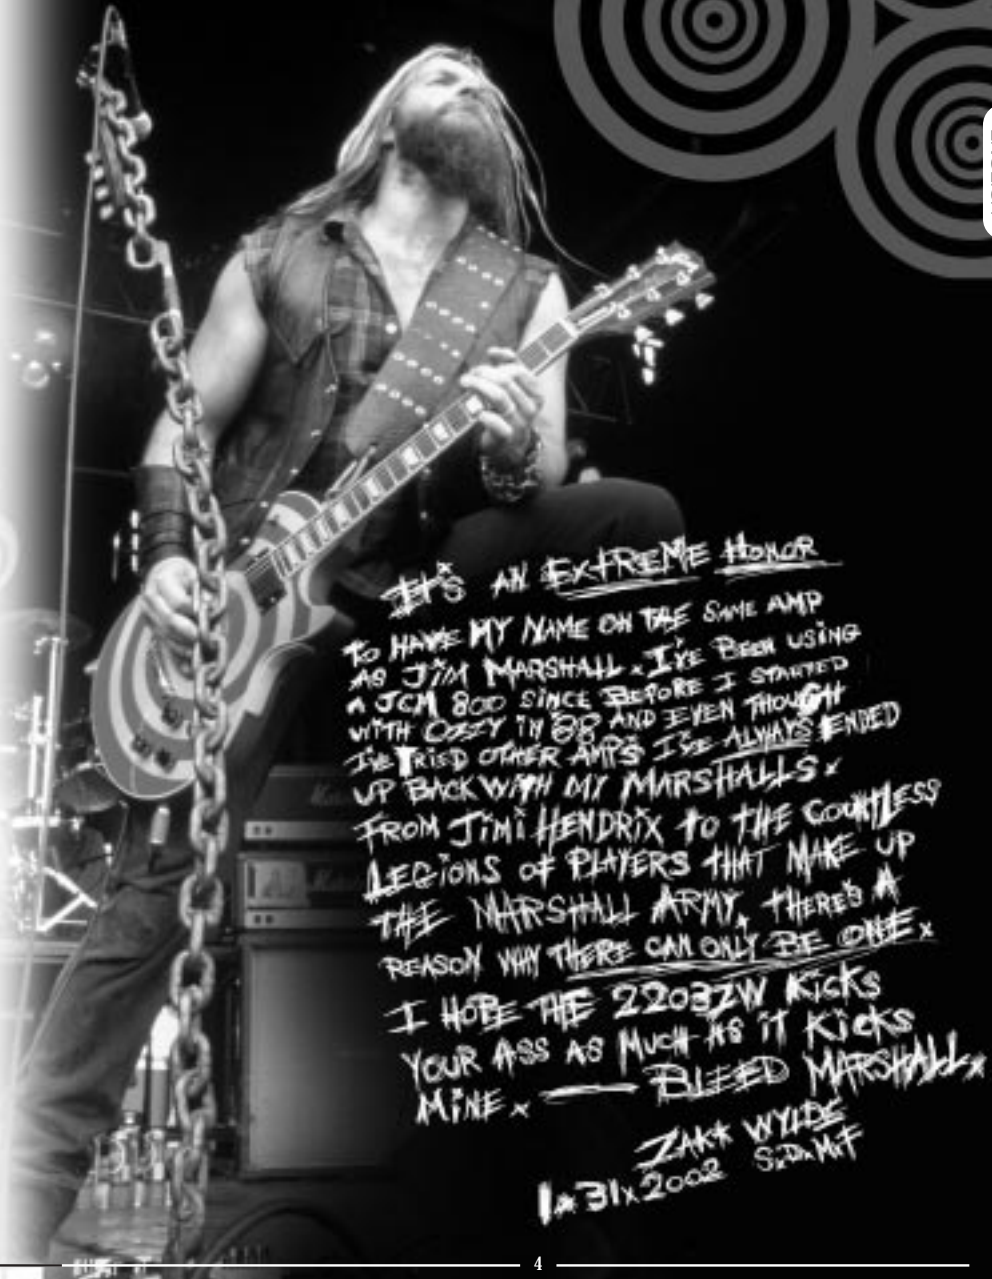 IT'S AN EXTREME HONOR
TO HAVE MY NAME ON THE SAME AMP
AS JIM MARSHALL x I'VE BEEN USING
A JCM 800 SINCE BEFORE I STARTED
WITH OZZY IN '88 AND EVEN THOUGH
I'VE TRIED OTHER AMPS I'VE ALWAYS ENDED
UP BACK WITH MY MARSHALLS x
FROM JIMI HENDRIX TO THE COUNTLESS
LEGIONS OF PLAYERS THAT MAKE UP
THE MARSHALL ARMY, THERE'S A
REASON WHY THERE CAN ONLY BE ONE x
I HOPE THE 2203ZW KICKS
YOUR ASS AS MUCH AS IT KICKS
MINE x — BLEED MARSHALL x
ZAKK WYLDE
SxDxMxF
1x31x2002
4